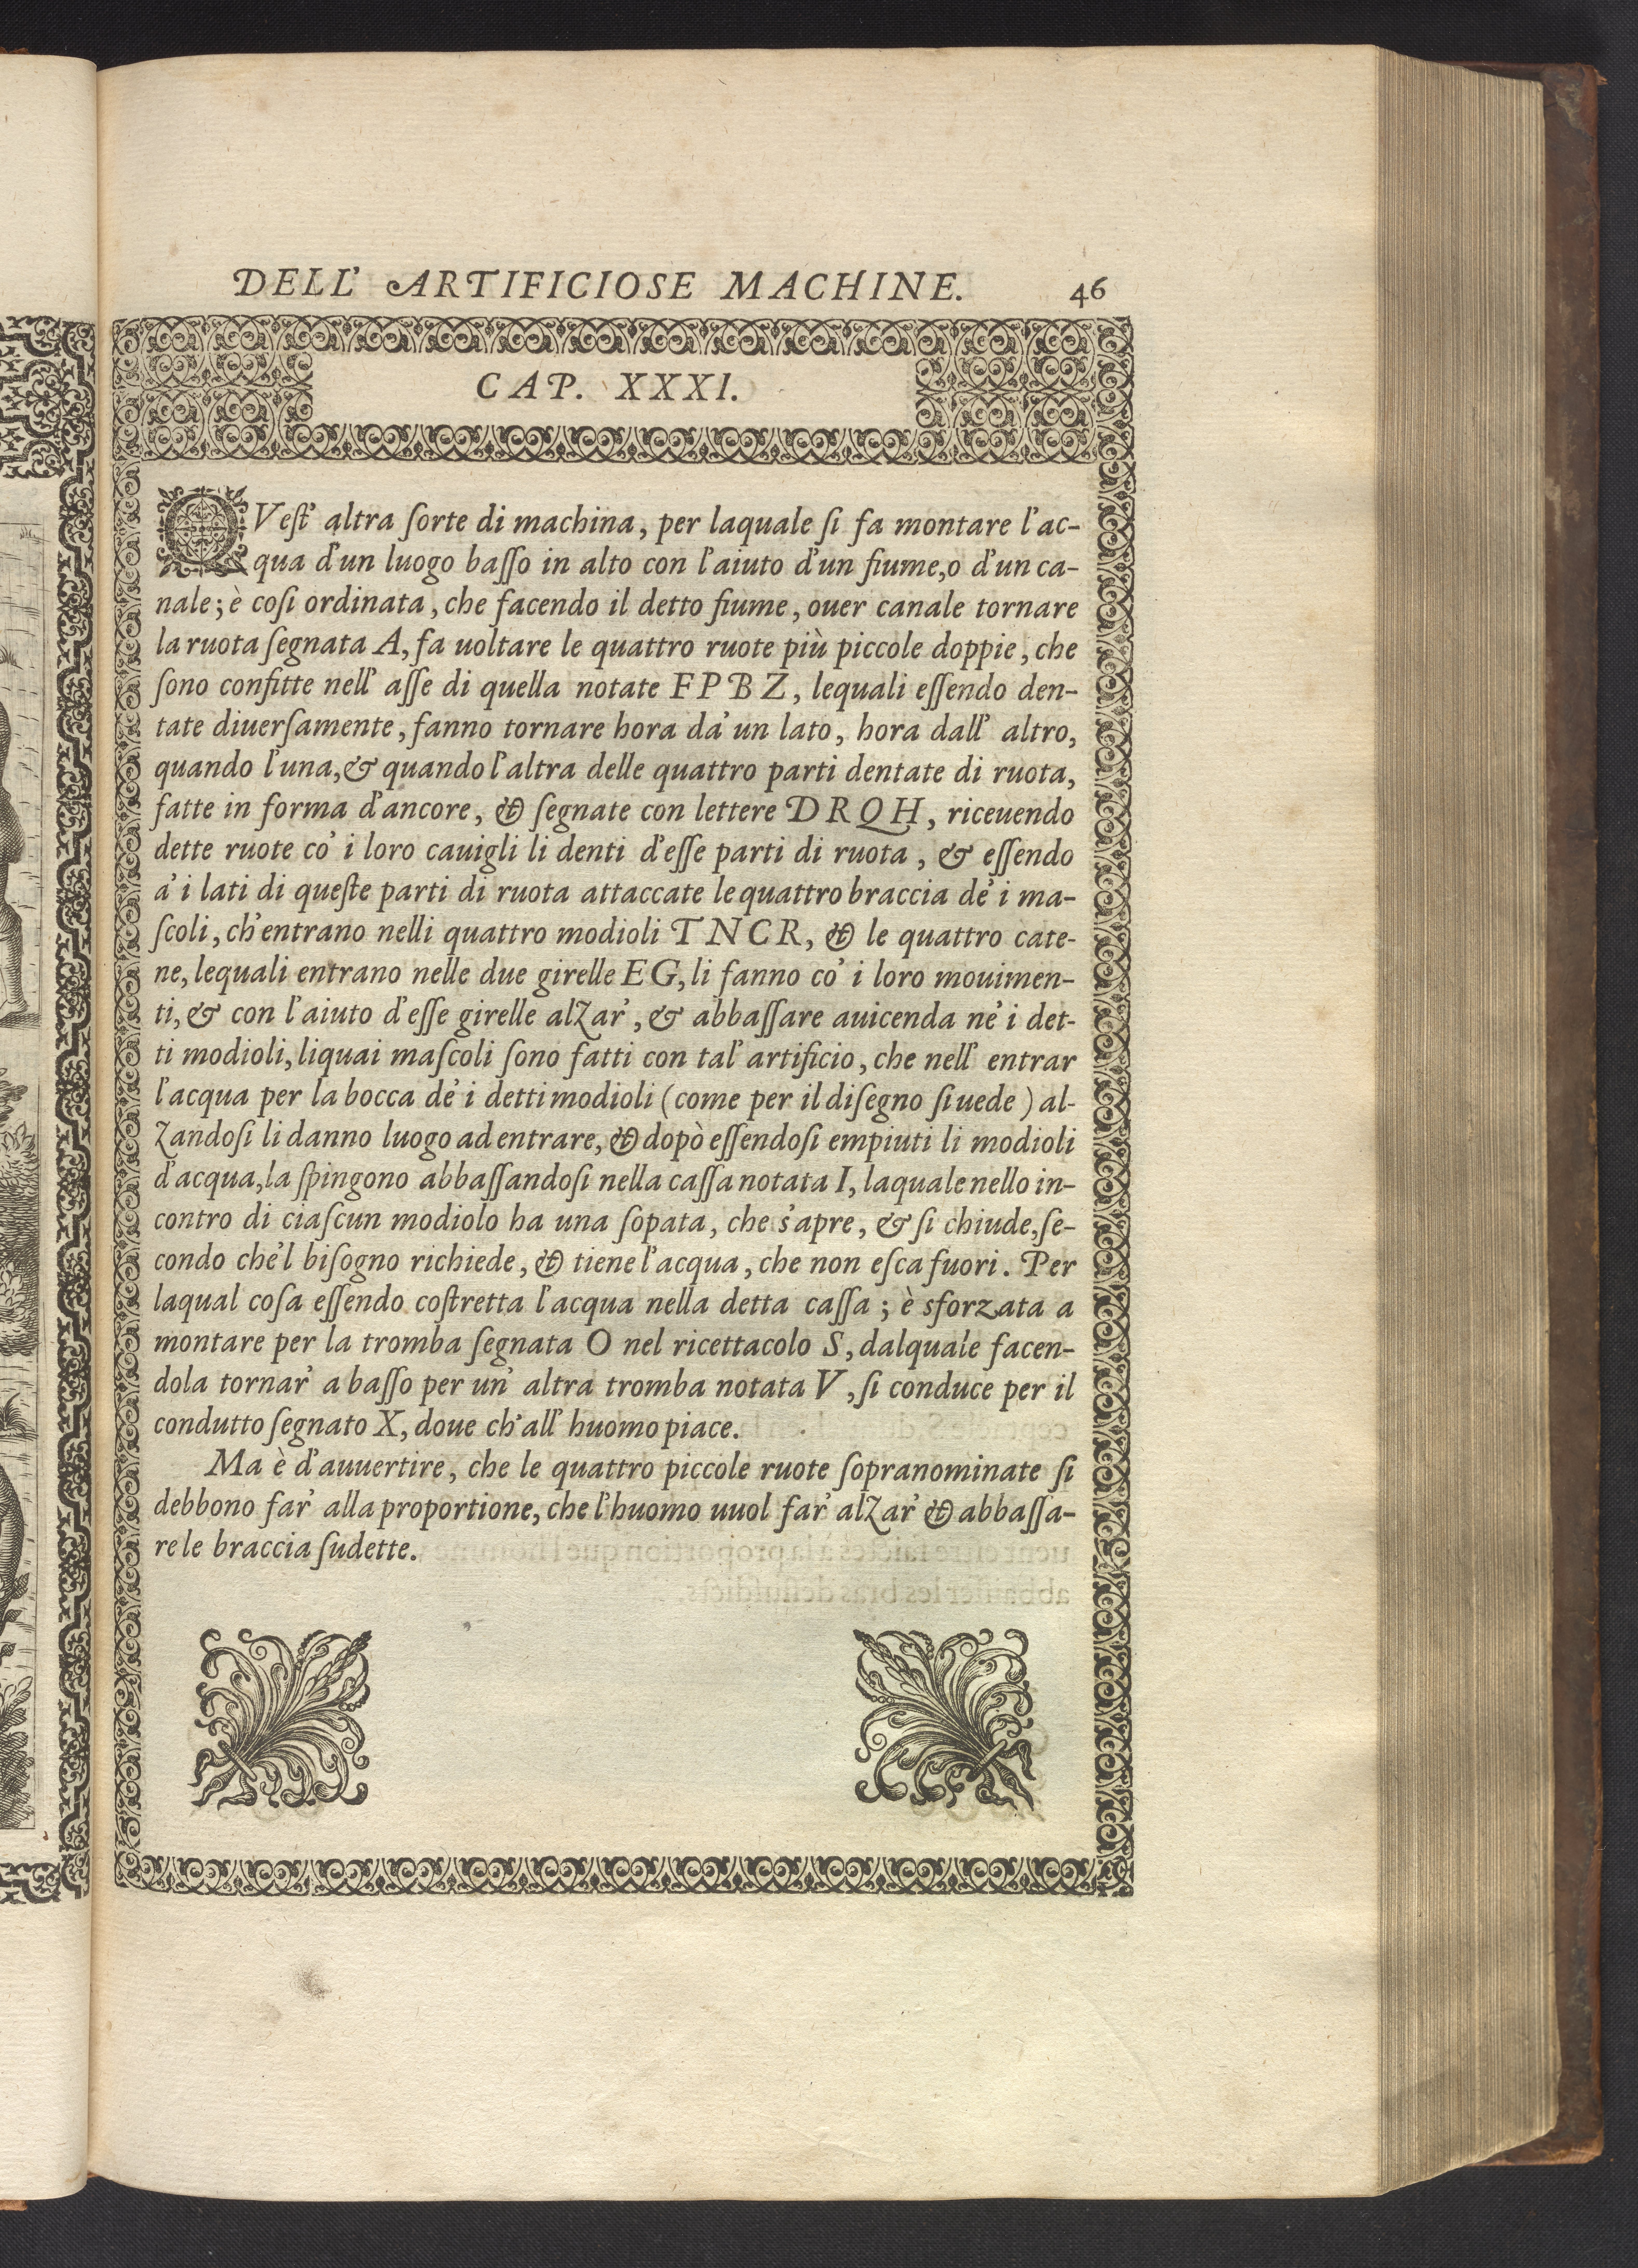 DELL' ARTIFICIOSE MACHINE. 46
CAP. XXXI.
QVest' altra sorte di machina, per laquale si fa montare l'ac-
qua d'un luogo basso in alto con l'aiuto d'un fiume, o d'un ca-
nale; è cosi ordinata, che facendo il detto fiume, ouer canale tornare
la ruota segnata A, fa uoltare le quattro ruote più piccole doppie, che
sono confitte nell' asse di quella notate F P B Z, lequali essendo den-
tate diuersamente, fanno tornare hora da' un lato, hora dall' altro,
quando l'una, & quando l'altra delle quattro parti dentate di ruota,
fatte in forma d'ancore, & segnate con lettere D R Q H, riceuendo
dette ruote co' i loro cauigli li denti d'esse parti di ruota, & essendo
a' i lati di queste parti di ruota attaccate le quattro braccia de' i ma-
scoli, ch'entrano nelli quattro modioli T N C R, & le quattro cate-
ne, lequali entrano nelle due girelle E G, li fanno co' i loro mouimen-
ti, & con l'aiuto d'esse girelle alzar', & abbassare auicenda ne' i det-
ti modioli, liquai mascoli sono fatti con tal' artificio, che nell' entrar
l'acqua per la bocca de' i detti modioli (come per il disegno si uede) al-
zandosi li danno luogo ad entrare, & dopò essendosi empiuti li modioli
d'acqua, la spingono abbassandosi nella cassa notata I, laquale nello in-
contro di ciascun modiolo ha una sopata, che s'apre, & si chiude, se-
condo che'l bisogno richiede, & tiene l'acqua, che non esca fuori. Per
laqual cosa essendo costretta l'acqua nella detta cassa; è sforzata a
montare per la tromba segnata O nel ricettacolo S, dalquale facen-
dola tornar' a basso per un' altra tromba notata V, si conduce per il
condutto segnato X, doue ch'all' huomo piace.
Ma è d'auuertire, che le quattro piccole ruote sopranominate si
debbono far' alla proportione, che l'huomo uuol far' alzar' & abbassa-
re le braccia sudette.